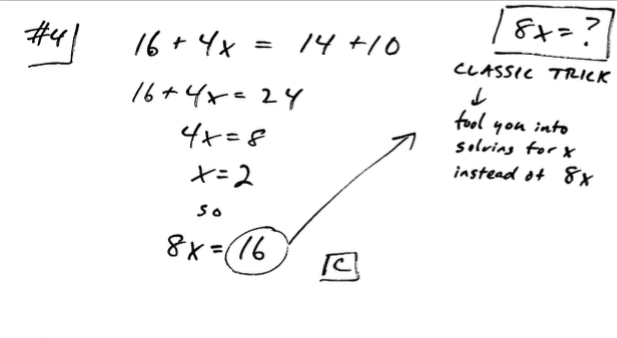 #4
16 + 4x = 14 + 10
16 + 4x = 24
4x = 8
x = 2
so
8x = 16
C
8x = ?
CLASSIC TRICK
↓
fool you into
solving for x
instead of 8x